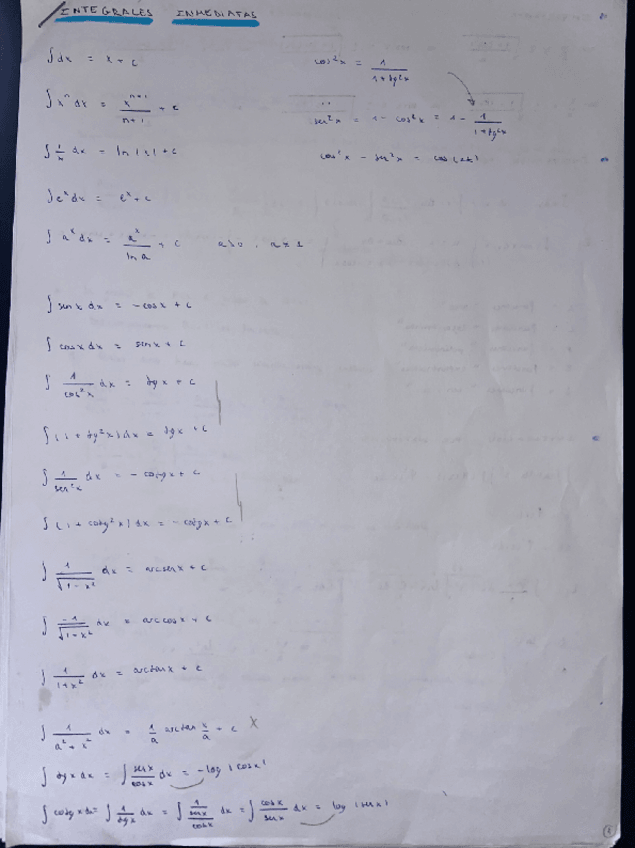 INTEGRALES INMEDIATAS
∫dx = x + c
∫xⁿ dx = xⁿ⁺¹/(n+1) + c
∫ 1/x dx = ln |x| + c
∫eˣ dx = eˣ + c
∫ aˣ dx = aˣ/ln a + c a>0, a≠1
∫ sen x dx = -cos x + c
∫ cos x dx = sen x + c
∫ 1/cos²x dx = tg x + c
∫(1 + tg²x) dx = tg x + c
∫ 1/sen²x dx = - cotg x + c
∫ (1 + cotg²x) dx = - cotg x + c
∫ 1/√(1-x²) dx = arcsen x + c
∫ -1/√(1-x²) dx = arccos x + c
∫ 1/(1+x²) dx = arctan x + c
∫ 1/(a²+x²) dx = 1/a arctan x/a + c X
∫ tg x dx = ∫ sen x/cos x dx = -log |cos x|
∫ cotg x dx = ∫ 1/tg x dx = ∫ 1/(sen x/cos x) dx = ∫ cos x/sen x dx = log |sen x|
cos²x = 1/(1+tg²x)
sen²x = 1 - cos²x = 1 - 1/(1+tg²x)
cos²x - sen²x = cos(2x)